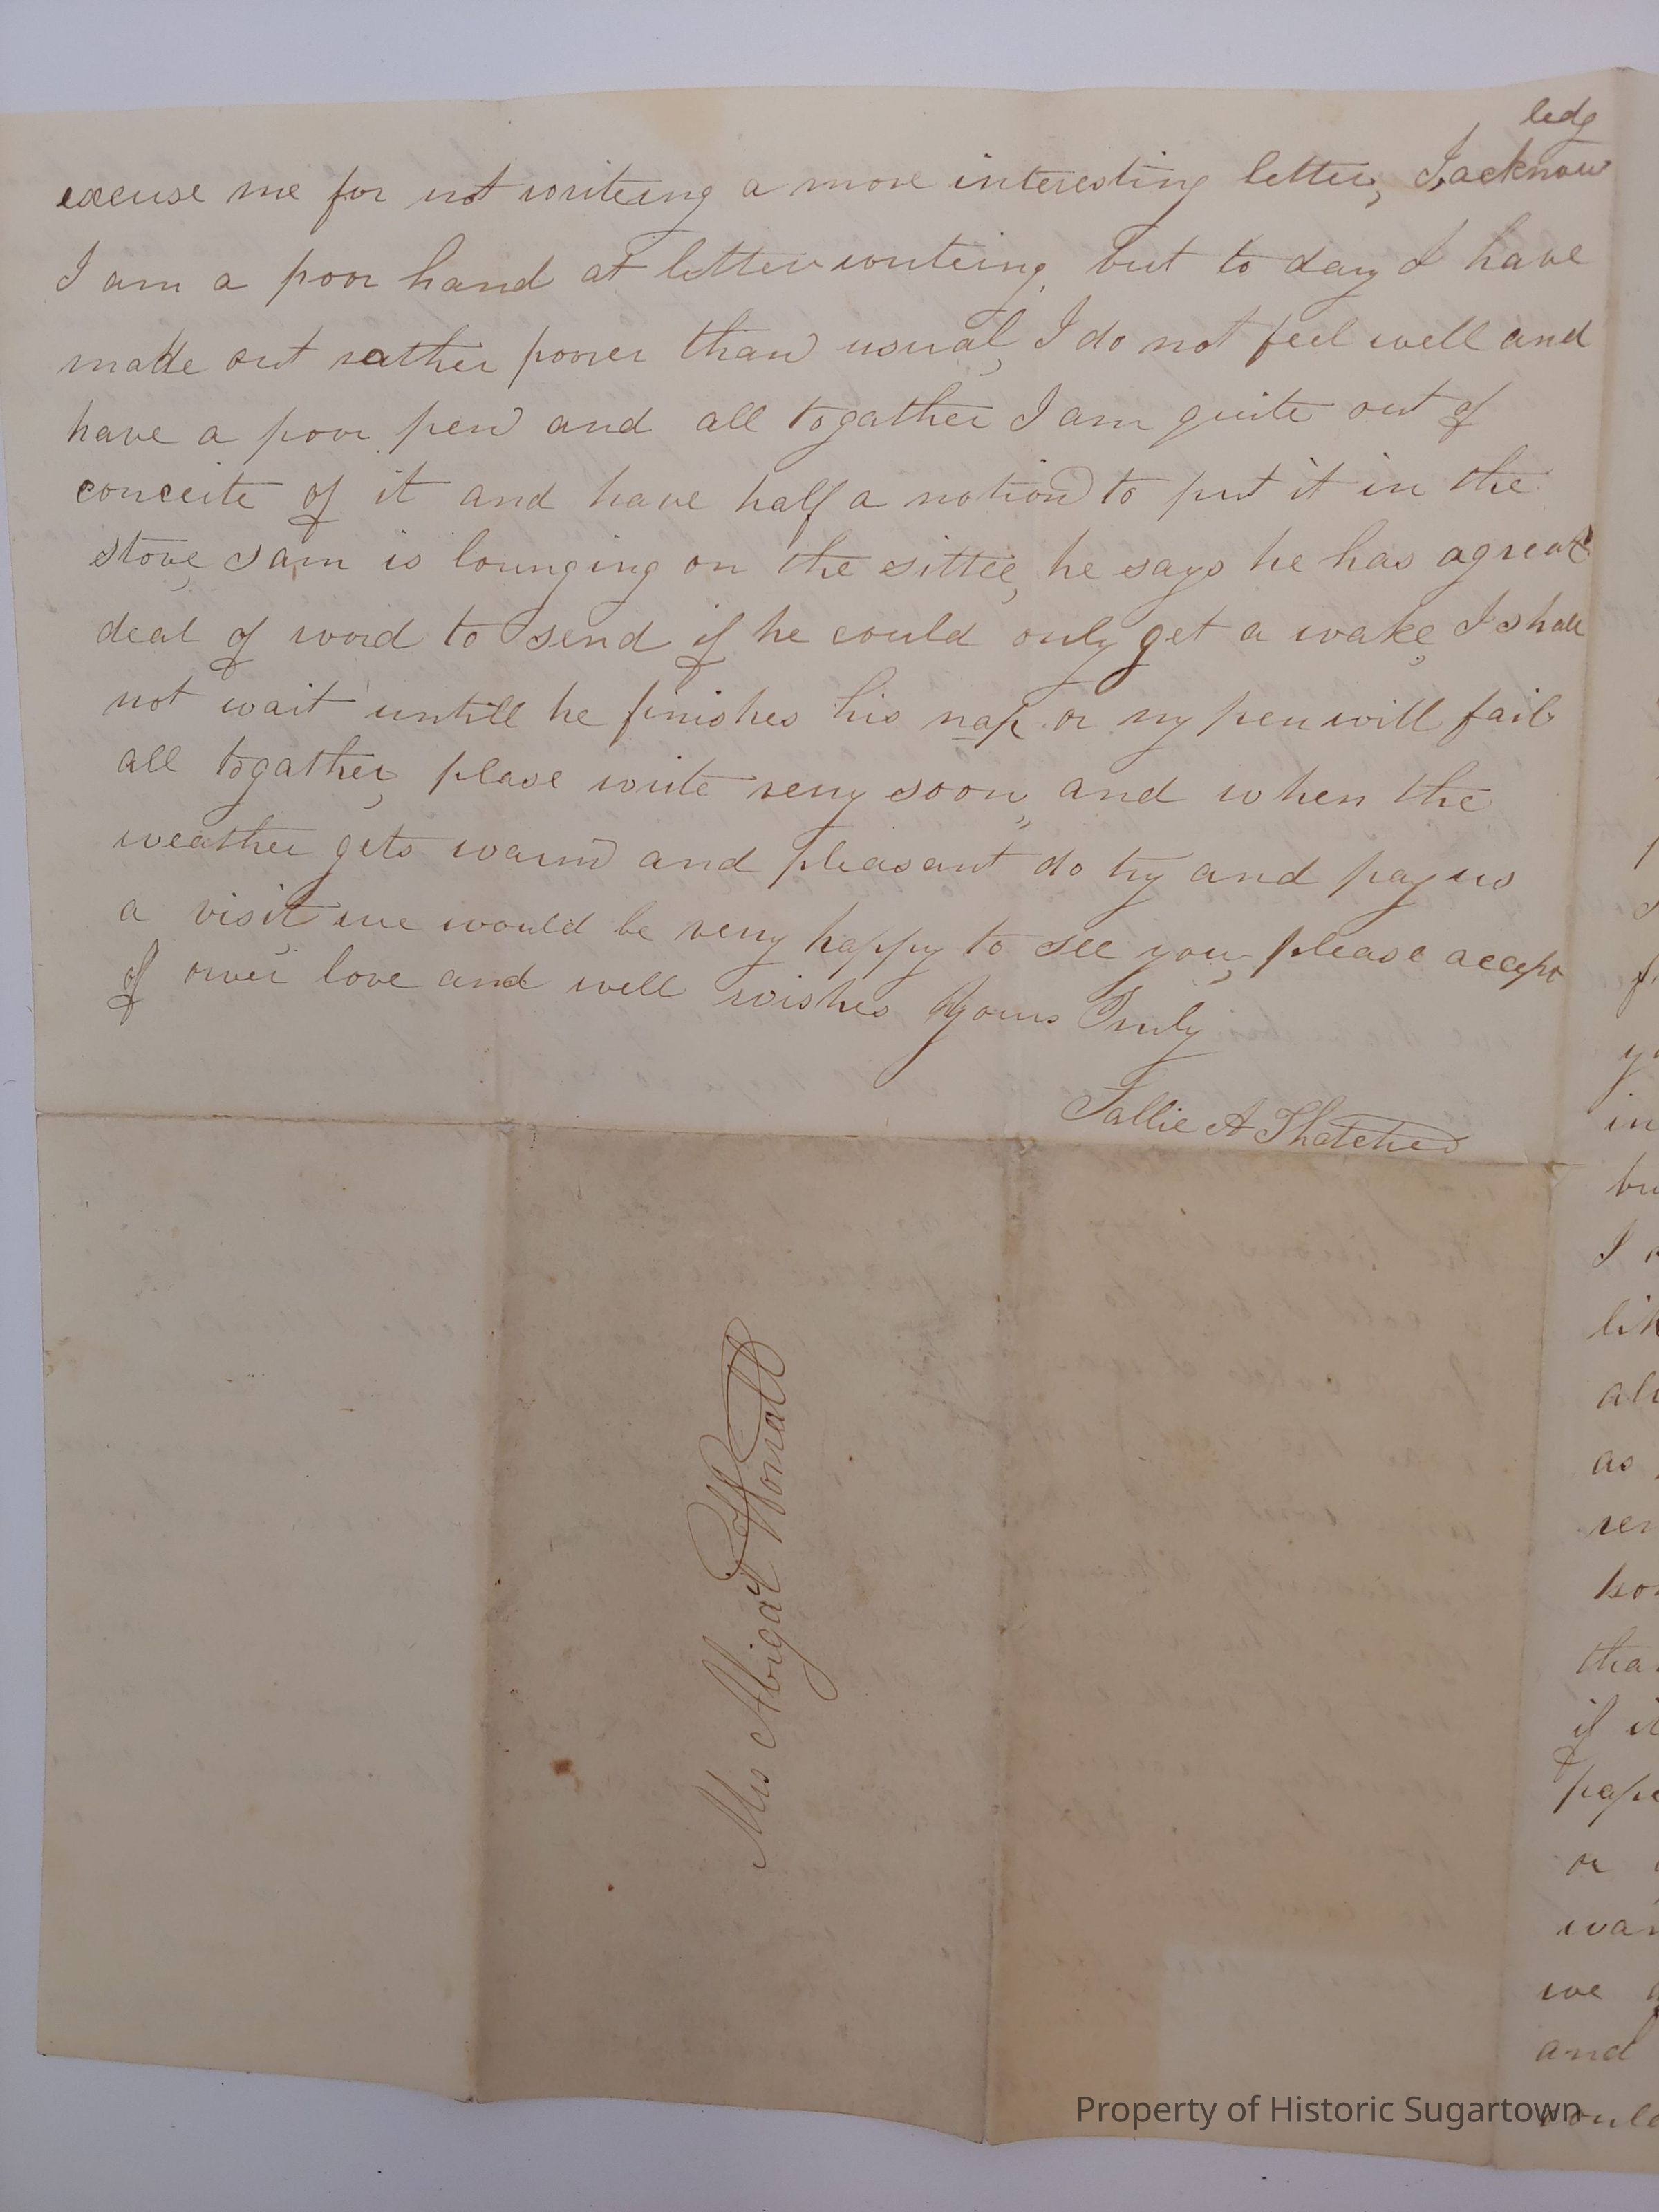 ledg
excuse me for not writeing a more interesting letter, I acknow
I am a poor hand at letter writeing, but to day I have
made out rather poorer than usual, I do not feel well and
have a poor pen and all togather I am quite out of
conceite of it and have half a notion to put it in the
stove, Sam is lounging on the sittee, he says he has a great
deal of word to send if he could only get a wake, I shall
not wait untill he finishes his nap or my pen will fail
all togather, plase write very soon, and when the
weather gets warm and pleasant do try and pay us
a visit, we would be very happy to see you, please accept
of ower love and well wishes Yours Truly
Sallie A Thatcher
Abigail
I
lik
as
if it
or
we
and
Property of Historic Sugartown